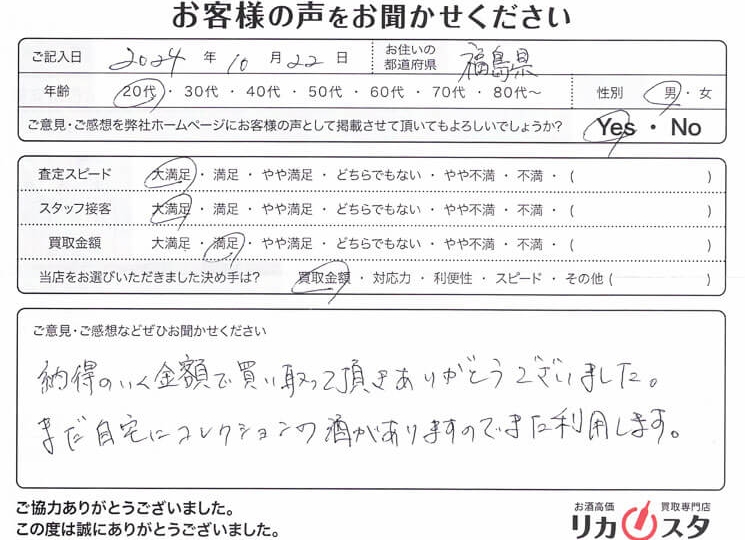 お客様の声をお聞かせください
ご記入日 2024 年 10 月 22 日 お住いの都道府県 福島県
年齢 20代・30代・40代・50代・60代・70代・80代〜 性別 男・女
ご意見・ご感想を弊社ホームページにお客様の声として掲載させて頂いてもよろしいでしょうか? Yes・No
査定スピード 大満足・満足・やや満足・どちらでもない・やや不満・不満・( )
スタッフ接客 大満足・満足・やや満足・どちらでもない・やや不満・不満・( )
買取金額 大満足・満足・やや満足・どちらでもない・やや不満・不満・( )
当店をお選びいただきました決め手は? 買取金額・対応力・利便性・スピード・その他( )
ご意見・ご感想などぜひお聞かせください
納得のいく金額で買い取って頂きありがとうございました。
まだ自宅にコレクションの酒がありますのでまた利用します。
ご協力ありがとうございました。
この度は誠にありがとうございました。
お酒高価 買取専門店
リカスタ